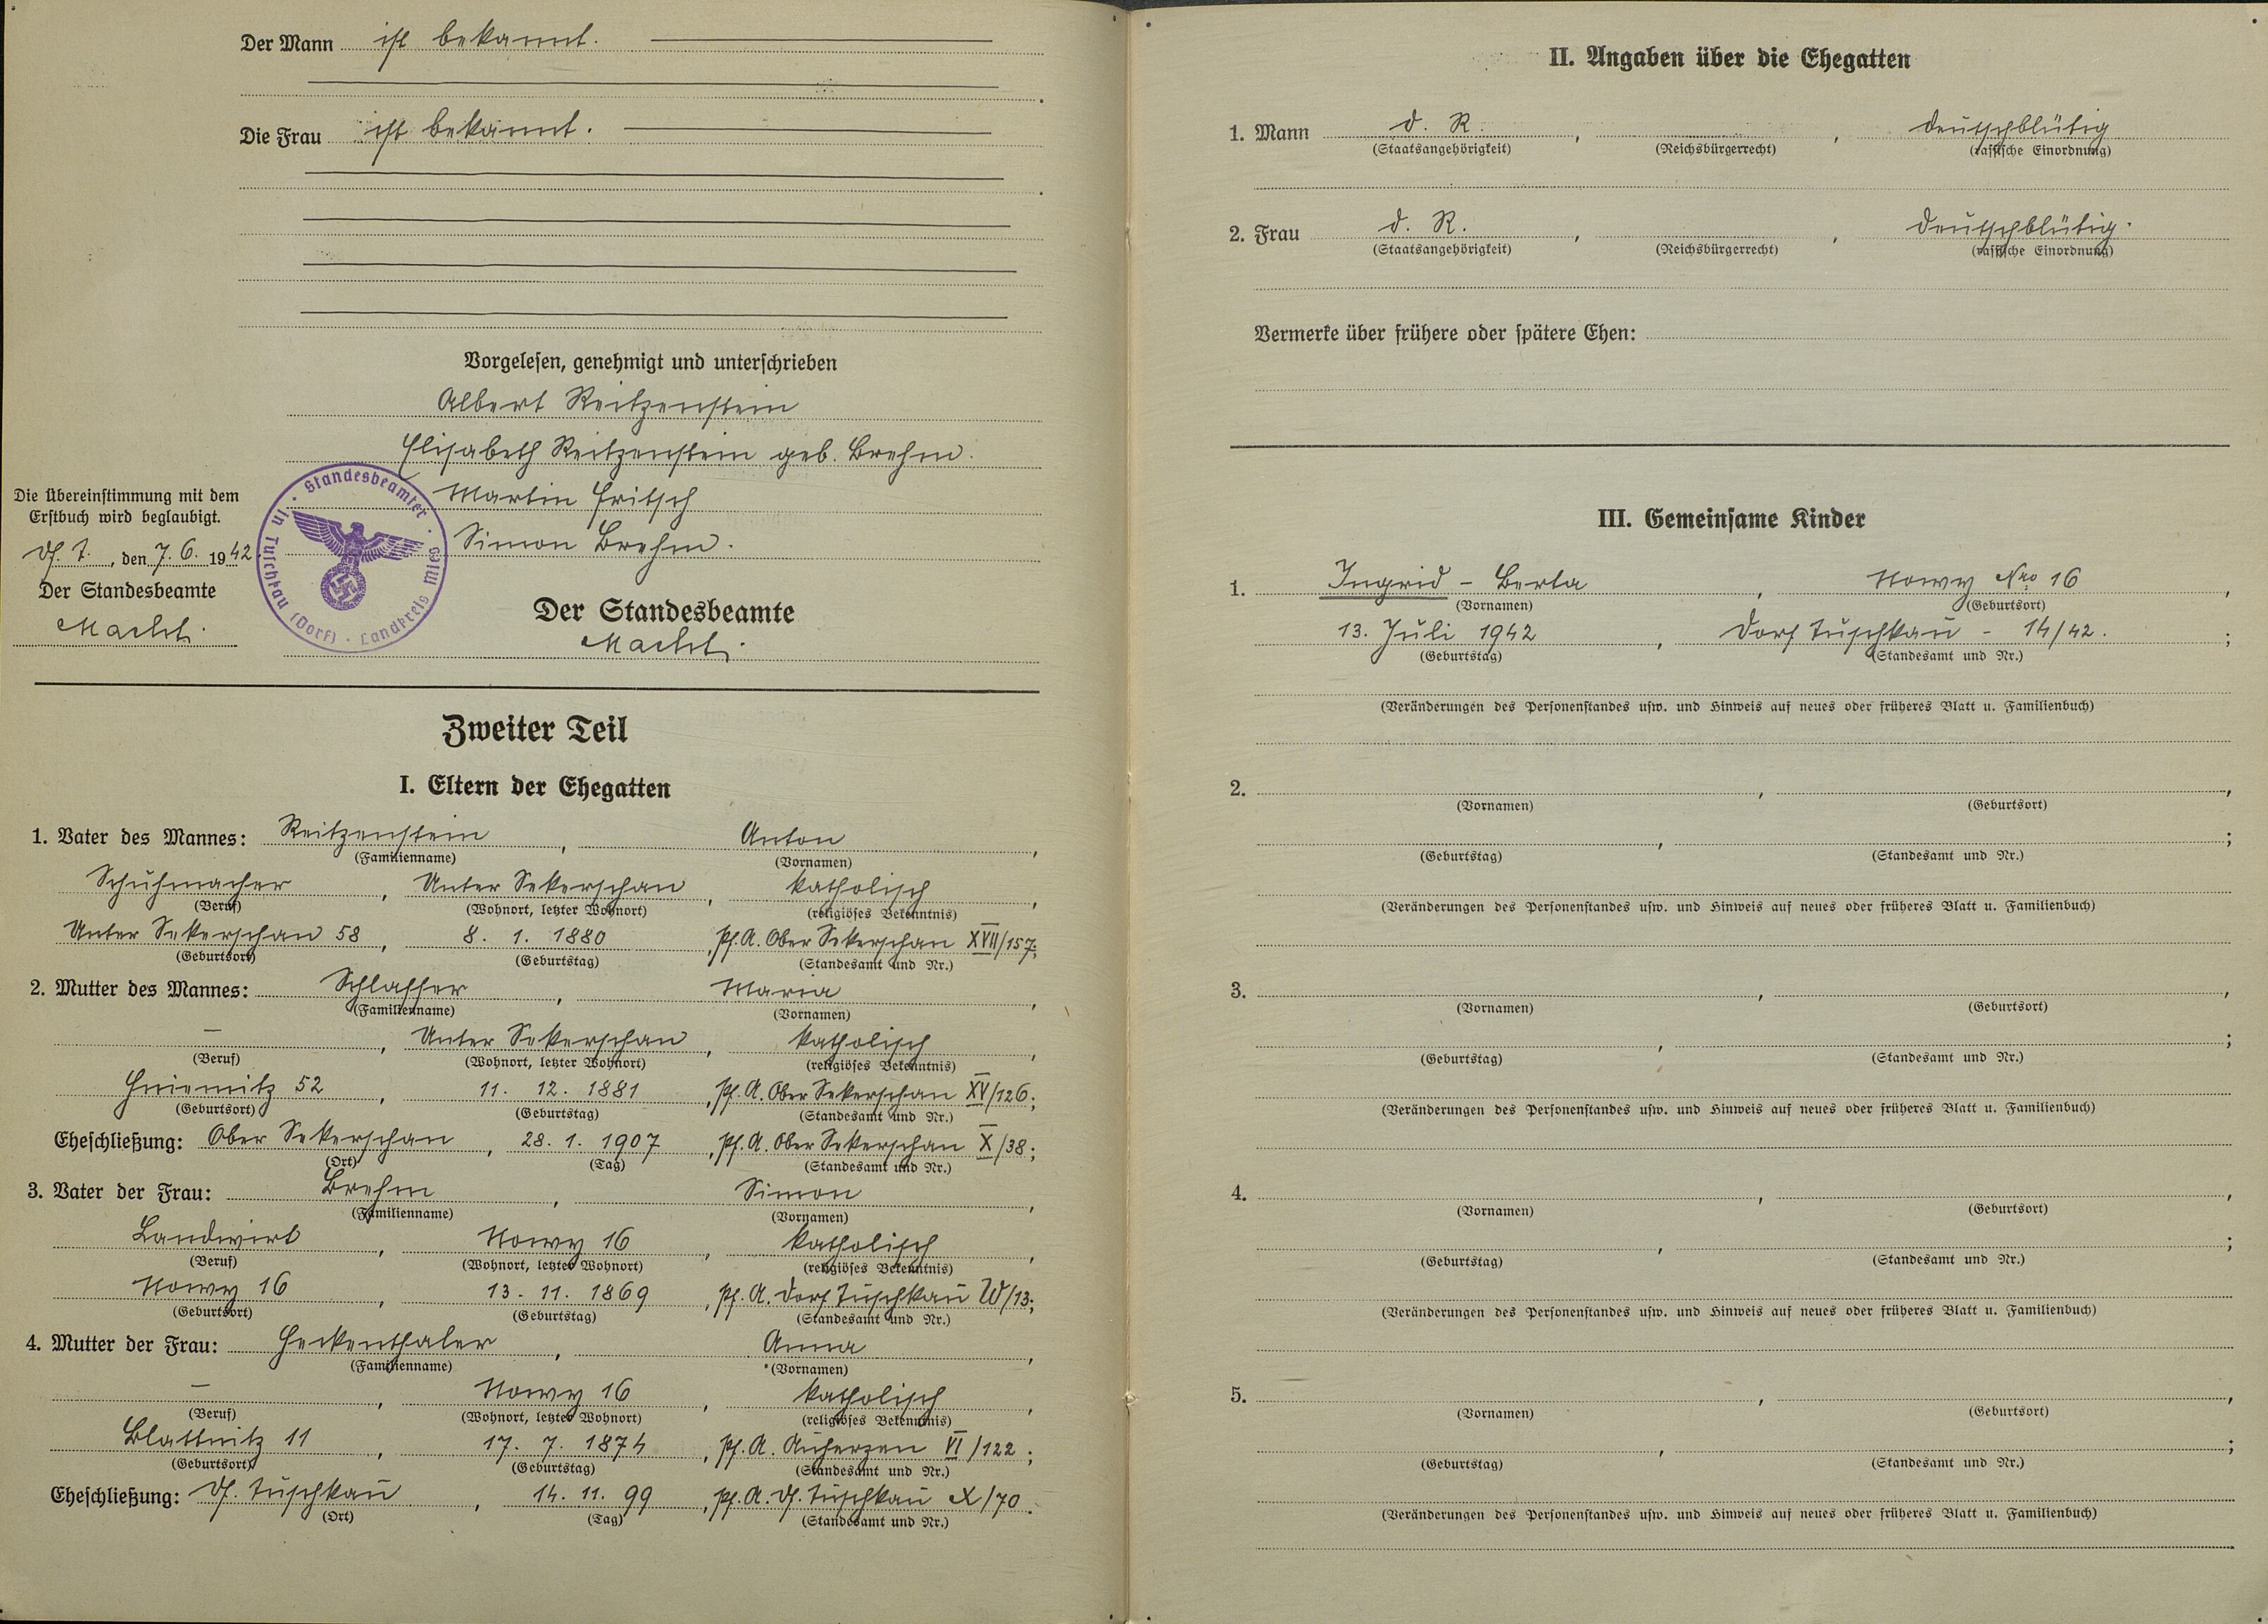 Der Mann ist bekannt.
Die Frau ist bekannt.
Vorgelesen, genehmigt und unterschrieben
Albert Reitzenstein
Elisabeth Reitzenstein geb. Brehm.
Martin Fritsch
Simon Brehm.
Die Übereinstimmung mit dem
Erstbuch wird beglaubigt.
Df. T., den 7. 6. 1942.
Der Standesbeamte
Macht.
Standesbeamter · in Tuschkau (Dorf) · Landkreis Mies ·
Der Standesbeamte
Macht.
Zweiter Teil
I. Eltern der Ehegatten
1. Vater des Mannes: Reitzenstein, Anton,
(Familienname) (Vornamen)
Schuhmacher, Unter Sekerschan, katholisch,
(Beruf) (Wohnort, letzter Wohnort) (religiöses Bekenntnis)
Unter Sekerschan 58, 8. 1. 1880, Pf. A. Ober Sekerschan XVII/157;
(Geburtsort) (Geburtstag) (Standesamt und Nr.)
2. Mutter des Mannes: Schlasser, Maria,
(Familienname) (Vornamen)
—, Unter Sekerschan, katholisch,
(Beruf) (Wohnort, letzter Wohnort) (religiöses Bekenntnis)
Hniemitz 52, 11. 12. 1881, Pf. A. Ober Sekerschan XV/126;
(Geburtsort) (Geburtstag) (Standesamt und Nr.)
Eheschließung: Ober Sekerschan, 28. 1. 1907, Pf. A. Ober Sekerschan X/38;
(Ort) (Tag) (Standesamt und Nr.)
3. Vater der Frau: Brehm, Simon,
(Familienname) (Vornamen)
Landwirt, Nowy 16, katholisch,
(Beruf) (Wohnort, letzter Wohnort) (religiöses Bekenntnis)
Nowy 16, 13. 11. 1869, Pf. A. Dorf Tuschkau /13;
(Geburtsort) (Geburtstag) (Standesamt und Nr.)
4. Mutter der Frau: Heckenthaler, Anna,
(Familienname) (Vornamen)
—, Nowy 16, katholisch,
(Beruf) (Wohnort, letzter Wohnort) (religiöses Bekenntnis)
Blattnitz 11, 17. 7. 1874, Pf. A. Auherzen VI/122;
(Geburtsort) (Geburtstag) (Standesamt und Nr.)
Eheschließung: Df. Tuschkau, 14. 11. 99, Pf. A. Df. Tuschkau X/70.
(Ort) (Tag) (Standesamt und Nr.)
II. Angaben über die Ehegatten
1. Mann d. R., , deutschblütig
(Staatsangehörigkeit) (Reichsbürgerrecht) (rassische Einordnung)
2. Frau d. R., , deutschblütig.
(Staatsangehörigkeit) (Reichsbürgerrecht) (rassische Einordnung)
Vermerke über frühere oder spätere Ehen:
III. Gemeinsame Kinder
1. Ingrid - Berta, Nowy Nro 16,
(Vornamen) (Geburtsort)
13. Juli 1942, Dorf Tuschkau - 14/42.;
(Geburtstag) (Standesamt und Nr.)
(Veränderungen des Personenstandes usw. und Hinweis auf neues oder früheres Blatt u. Familienbuch)
2. , ,
(Vornamen) (Geburtsort)
, ;
(Geburtstag) (Standesamt und Nr.)
(Veränderungen des Personenstandes usw. und Hinweis auf neues oder früheres Blatt u. Familienbuch)
3. , ,
(Vornamen) (Geburtsort)
, ;
(Geburtstag) (Standesamt und Nr.)
(Veränderungen des Personenstandes usw. und Hinweis auf neues oder früheres Blatt u. Familienbuch)
4. , ,
(Vornamen) (Geburtsort)
, ;
(Geburtstag) (Standesamt und Nr.)
(Veränderungen des Personenstandes usw. und Hinweis auf neues oder früheres Blatt u. Familienbuch)
5. , ,
(Vornamen) (Geburtsort)
, ;
(Geburtstag) (Standesamt und Nr.)
(Veränderungen des Personenstandes usw. und Hinweis auf neues oder früheres Blatt u. Familienbuch)